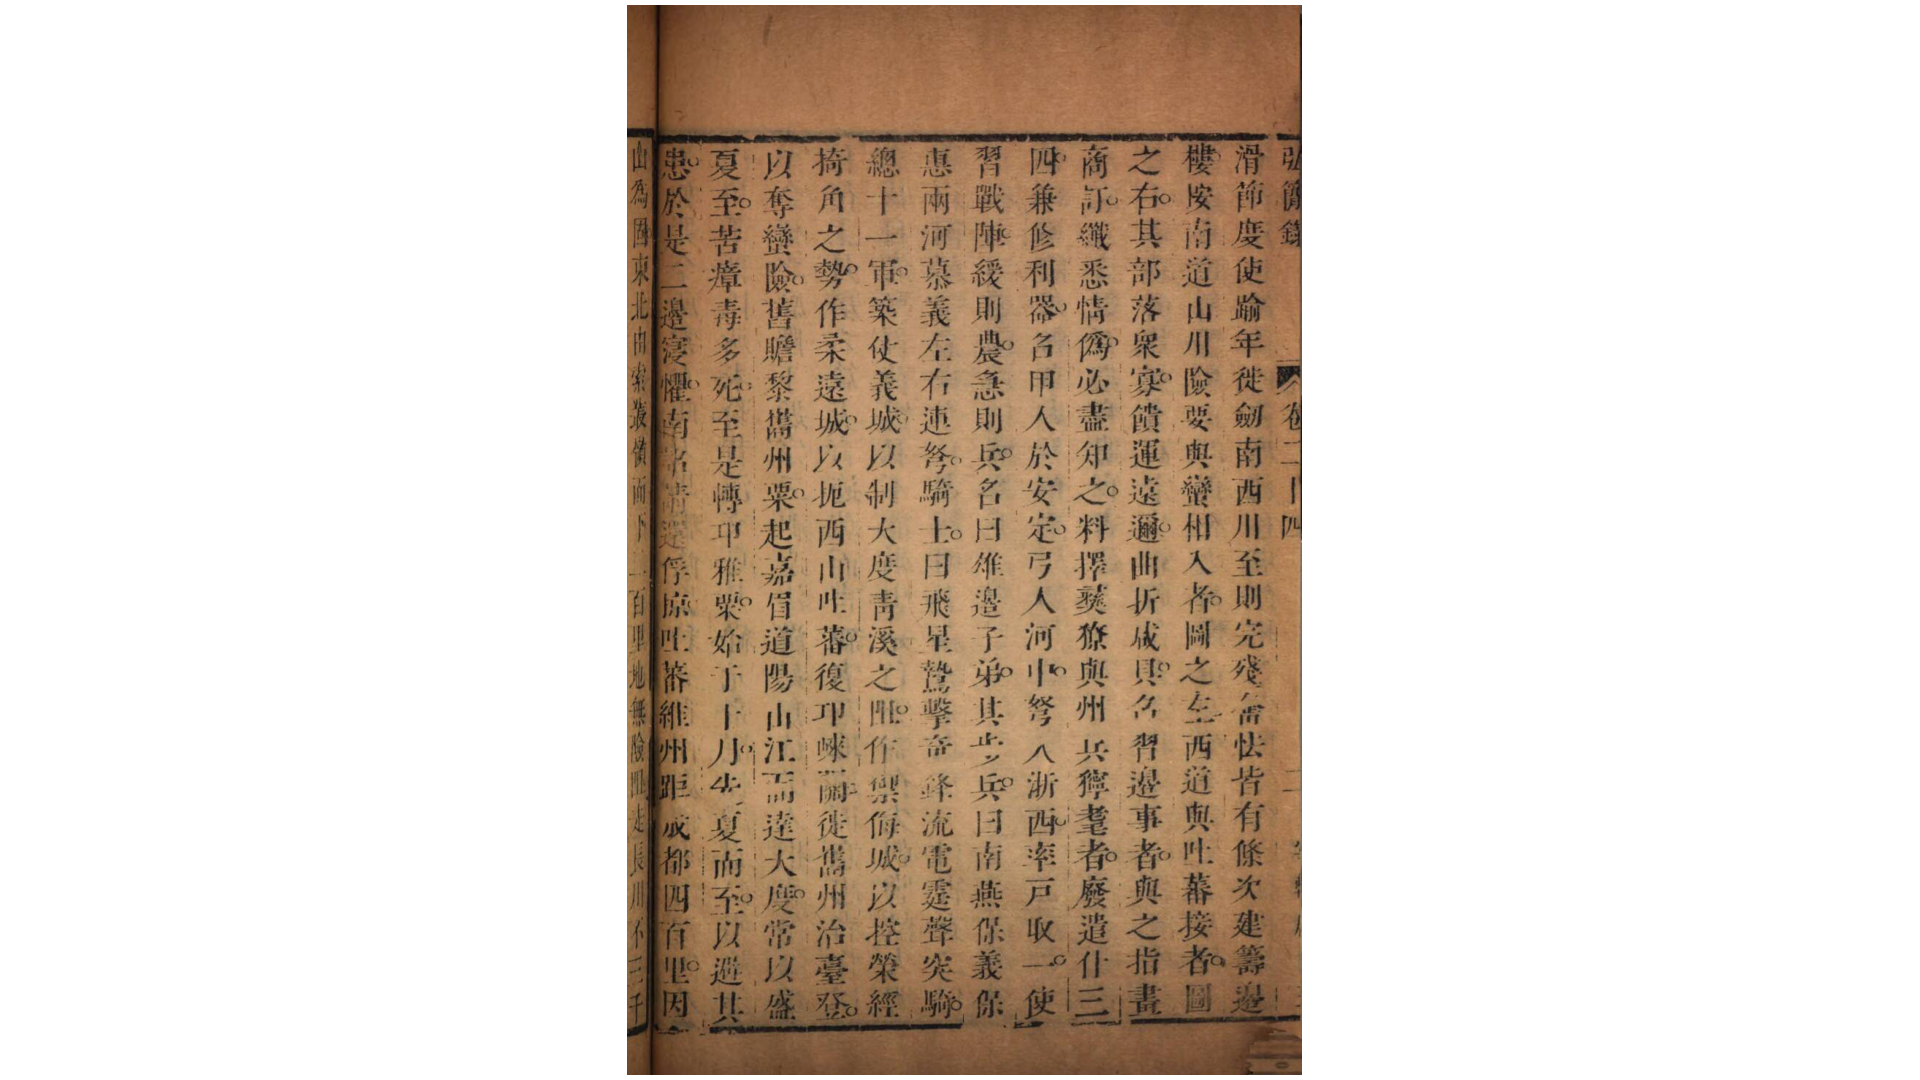 弘簡錄 卷二十四
滑節度使踰年徙劒南西川至則完殘奮怯皆有條次建籌邊
樓按南道山川險要與蠻相入者圖之左西道與吐蕃接者圖
之右其部落衆寡饋運遠邇曲折咸具召習邊事者與之指畫
商訂纖悉情僞必盡知之料擇羡獠與州兵獰耄者廢遣什三
四兼修利器召甲人於安定弓人河中弩人浙西率戸取一使
習戰陣緩則農急則兵名曰雄邊子弟其步兵曰南燕保義保
惠兩河慕義左右連弩騎士曰飛星鷙擊奇鋒流電霆聲突騎
總十一軍築仗義城以制大度青溪之阻作禦侮城以控榮經
掎角之勢作柔遠城以扼西山吐蕃復邛崍關徙雟州治臺登
以奪蠻險舊贍黎雟州粟起嘉眉道陽山江而達大度常以盛
夏至苦瘴毒多死至是轉邛雅粟始于十月先夏而至以避其
患於是二邊寖懼南詔請還俘掠吐蕃維州距成都四百里因
山爲固東北由索叢嶺而下二百里地無險阻走長川不三千